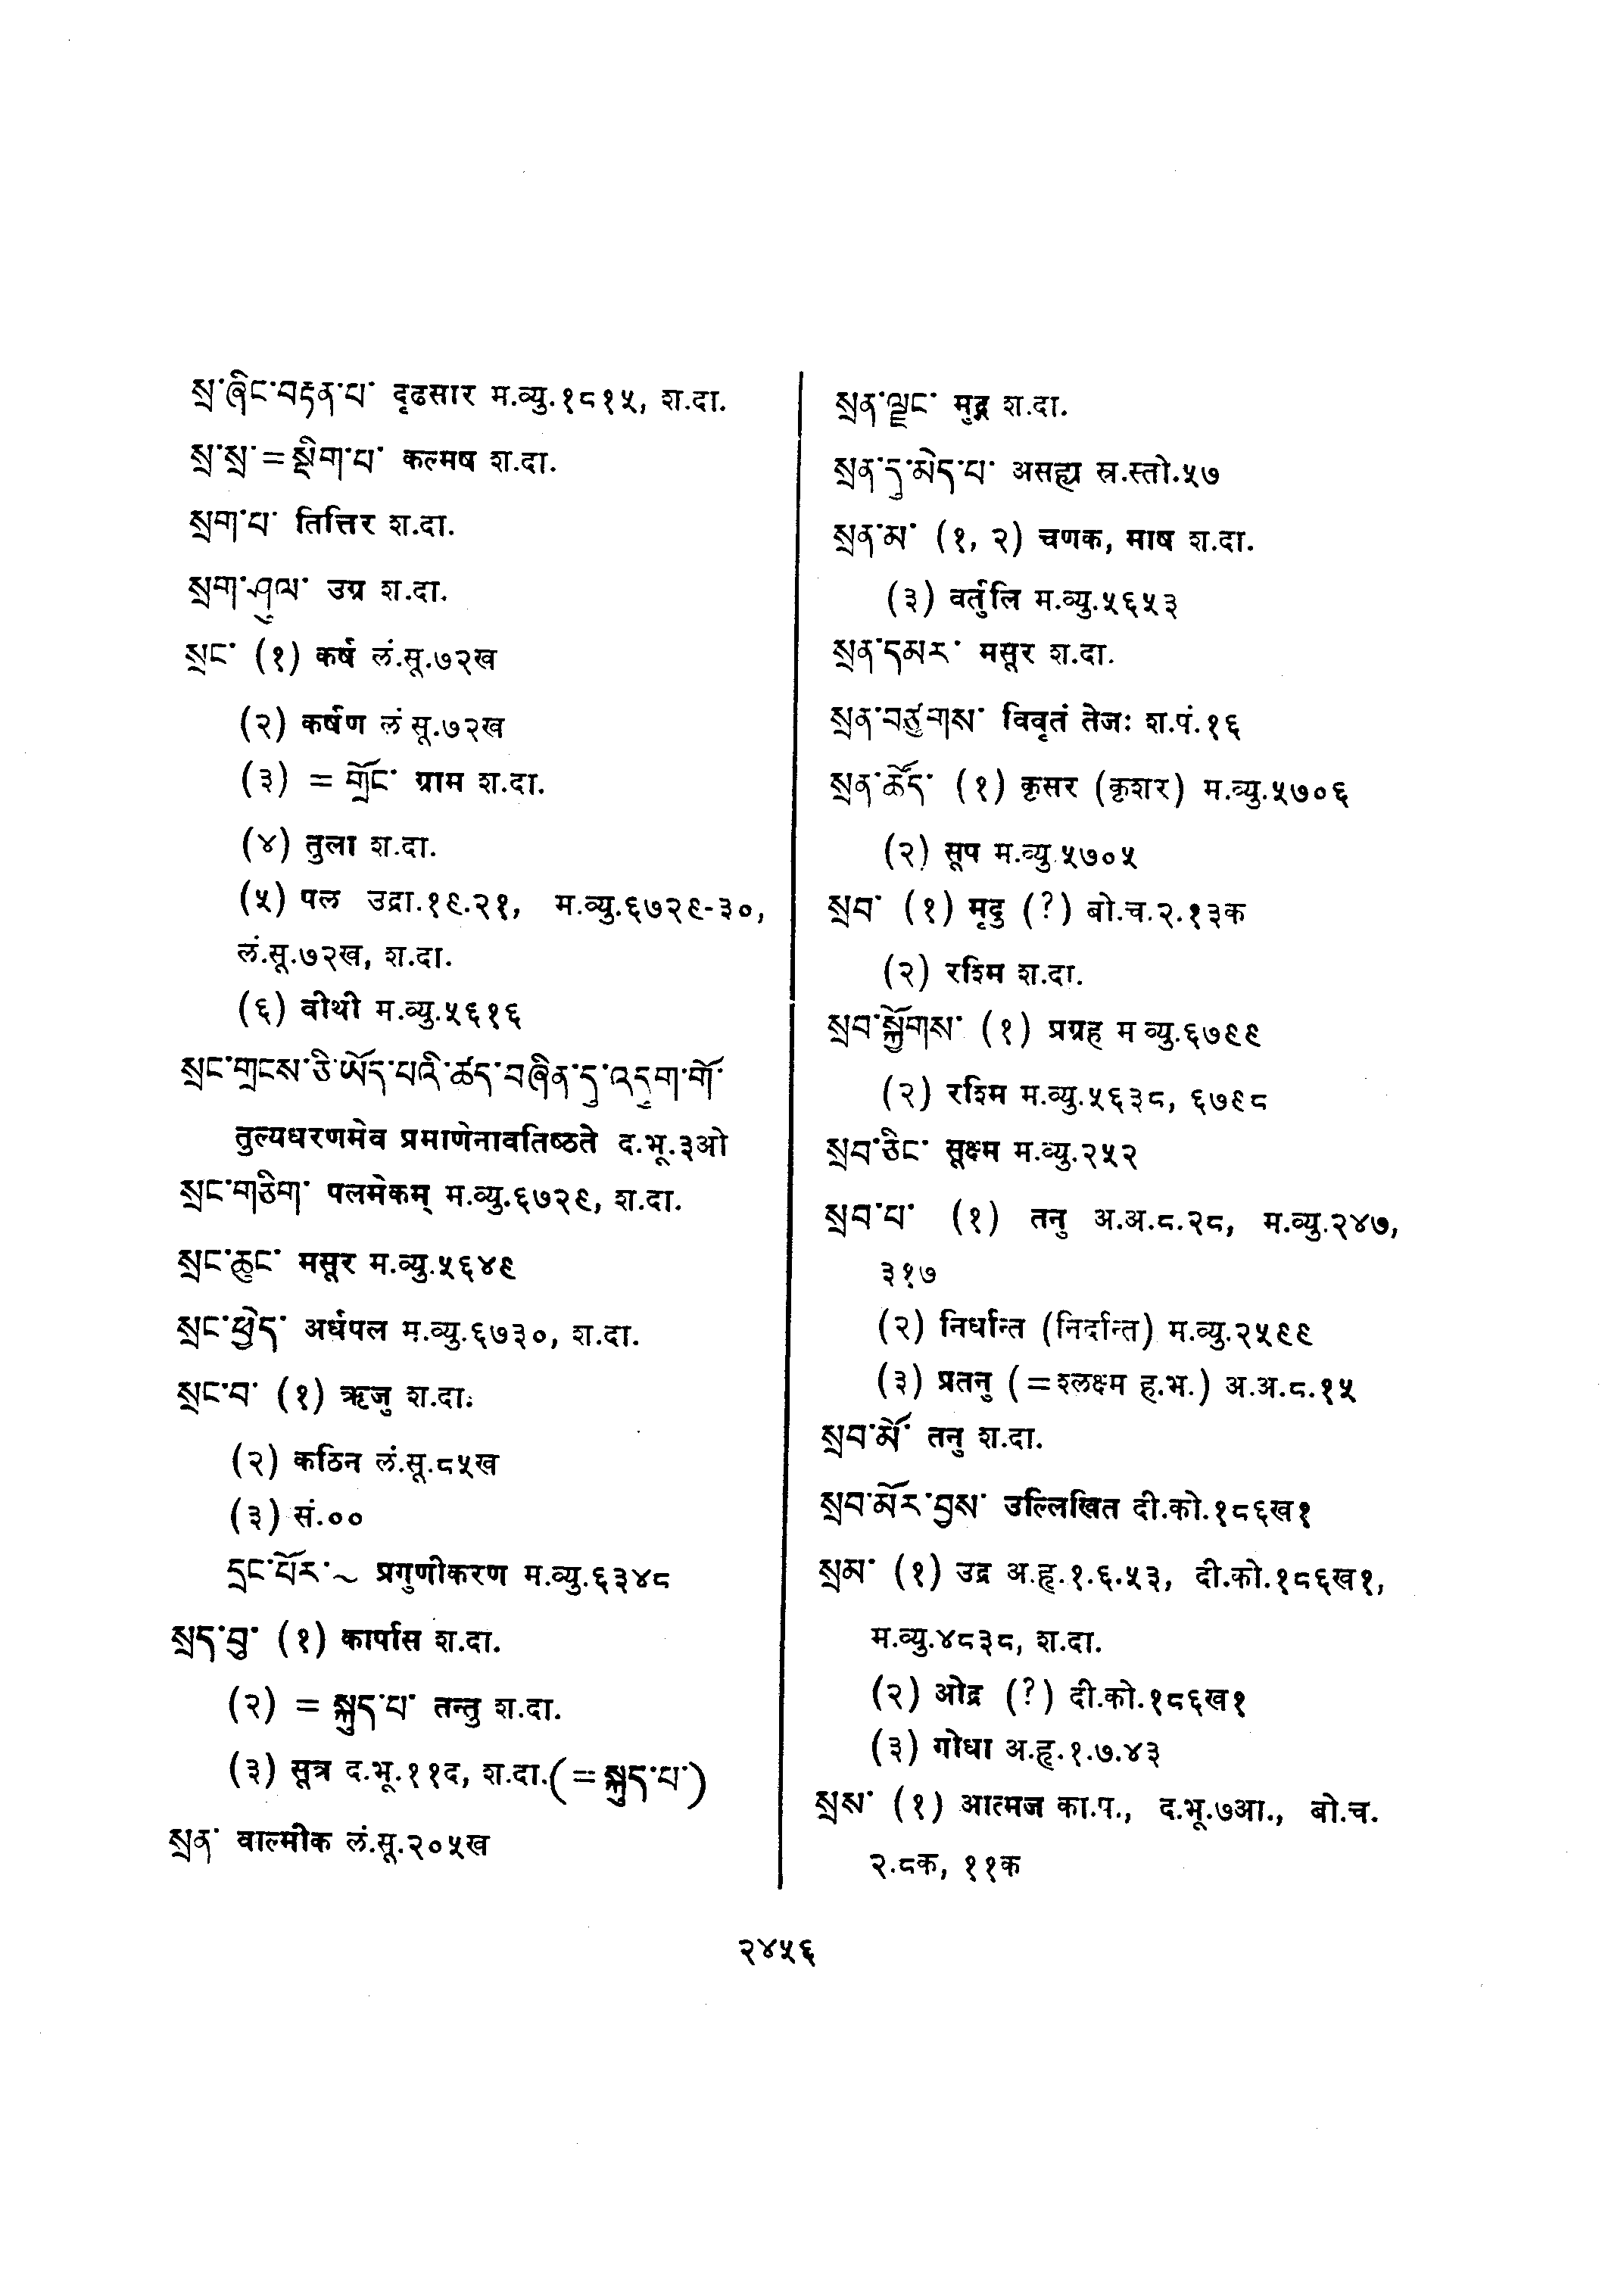 སྲ་ཞིང་བརྟན་པ་ दृढसार म.व्यु.१८१५, श.दा.
སྲ་སྲ་=སྡིག་པ་ कल्मष श.दा.
སྲག་པ་ तित्तिर श.दा.
སྲག་ཤུལ་ उग्र श.दा.
སྲང་ (१) कर्ष लं.सू.७२ख
(२) कर्षण लं सू.७२ख
(३) = གྲོང་ ग्राम श.दा.
(४) तुला श.दा.
(५) पल उद्रा.१९.२१, म.व्यु.६७२९-३०,
लं.सू.७२ख, श.दा.
(६) वीथी म.व्यु.५६१६
སྲང་གྲངས་ཅི་ཡོད་པའི་ཚད་བཞིན་དུ་འདུག་གོ་
तुल्यधरणमेव प्रमाणेनावतिष्ठते द.भू.३ओ
སྲང་གཅིག་ पलमेकम् म.व्यु.६७२९, श.दा.
སྲང་ཆུང་ मसूर म.व्यु.५६४९
སྲང་ཕྱེད་ अर्धपल म.व्यु.६७३०, श.दा.
སྲང་བ་ (१) ऋजु श.दा.
(२) कठिन लं.सू.८५ख
(३) सं.००
དྲང་པོར་~ प्रगुणीकरण म.व्यु.६३४८
སྲད་བུ་ (१) कार्पास श.दा.
(२) = སྐུད་པ་ तन्तु श.दा.
(३) सूत्र द.भू.११द, श.दा.(=སྐུད་པ་)
སྲན་ वाल्मीक लं.सू.२०५ख
སྲན་ལྗང་ मुद्ग श.दा.
སྲན་དུ་མེད་པ་ असह्य स्र.स्तो.५७
སྲན་མ་ (१, २) चणक, माष श.दा.
(३) वर्तुलि म.व्यु.५६५३
སྲན་དམར་ मसूर श.दा.
སྲན་བཙུགས་ विवृतं तेजः श.पं.१६
སྲན་ཚོད་ (१) कृसर (कृशर) म.व्यु.५७०६
(२) सूप म.व्यु.५७०५
སྲབ་ (१) मृदु (?) बो.च.२.१३क
(२) रश्मि श.दा.
སྲབ་སྐྱོགས་ (१) प्रग्रह म व्यु.६७९९
(२) रश्मि म.व्यु.५६३८, ६७९८
སྲབ་ཅིང་ सूक्ष्म म.व्यु.२५२
སྲབ་པ་ (१) तनु अ.अ.८.२८, म.व्यु.२४७,
३१७
(२) निर्धान्त (निर्दान्त) म.व्यु.२५९९
(३) प्रतनु (=श्लक्ष्म ह.भ.) अ.अ.८.१५
སྲབ་མོ་ तनु श.दा.
སྲབ་མོར་བྱས་ उल्लिखित दी.को.१८६ख१
སྲམ་ (१) उद्र अ.हृ.१.६.५३, दी.को.१८६ख१,
म.व्यु.४८३८, श.दा.
(२) ओद्र (?) दी.को.१८६ख१
(३) गोधा अ.हृ.१.७.४३
སྲས་ (१) आत्मज का.प., द.भू.७आ., बो.च.
२.८क, ११क
२४५६